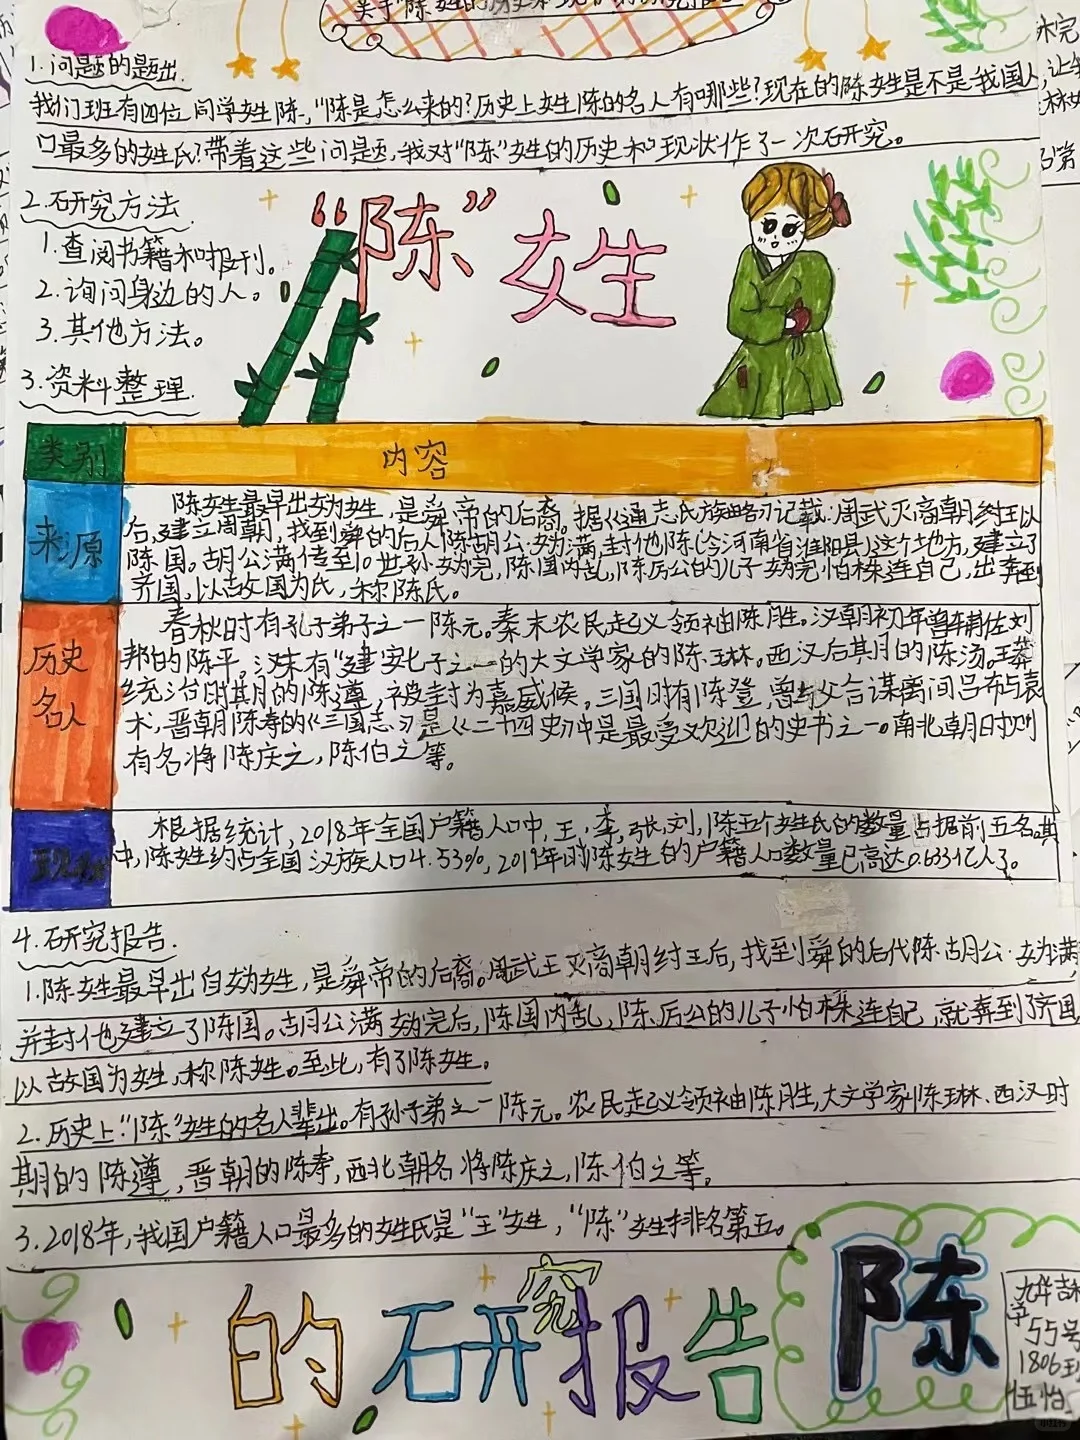 关于"陈"姓的历史和现状的研究报告
1.问题的题出
我们班有四位同学姓陈,"陈是怎么来的?历史上姓陈的名人有哪些?现在的陈姓是不是我国人
口最多的姓氏?带着这些问题,我对"陈"姓的历史和现状作了一次研究。
2.研究方法
1.查阅书籍和报刊。
2.询问身边的人。
3.其他方法。
3.资料整理
"陈"姓
类别
内容
来源
陈姓最早出妫姓,是舜帝的后裔。据《通志氏族略》记载:周武灭商朝纣王以
后,建立周朝,找到舜的后人陈胡公·妫满,封他陈(今河南省淮阳县)这个地方,建立了
陈国。胡公满传至10世孙妫完,陈国内乱,陈厉公的儿子妫完怕株连自己,出奔到
齐国,以故国为氏,称陈氏。
历史
名人
春秋时有孔子弟子之一陈元。秦末农民起义领袖陈胜。汉朝初年曾辅佐刘
邦的陈平。汉末有"建"安七子之一的大文学家的陈琳。西汉后其月的陈汤。王莽
统治时其月的陈遵,被封为嘉威候。三国时有陈登,曾与父合谋离间吕布与袁
术,晋朝陈寿的《三国志》是《二十四史》中是最受欢迎的史书之一。南北朝时则
有名将陈庆之,陈伯之等。
根据统计,2018年全国户籍人口中,王,李,张,刘,陈五个姓氏的数量占据前五名其
中,陈姓约占全国汉族人口4.53%,2019年时陈姓的户籍人口数量已高达0.633亿人了。
4.研究报告
1.陈姓最早出自妫姓,是舜帝的后裔。周武王灭商朝纣王后,找到舜的后代陈胡公·妫满
并封他建立了陈国。胡公满妫完后,陈国内乱,陈厉公的儿子怕株连自己,就奔到了齐国
以故国为姓,称陈姓。至此,有了陈姓。
2.历史上"陈"姓的名人辈出。有孙子弟之一陈元。农民起义领袖陈胜,大文学家陈琳、西汉时
期的陈遵,晋朝的陈寿,西北朝名将陈庆之,陈伯之等。
3.2018年,我国户籍人口最多的姓氏是"王"姓,"陈"姓排名第五。
的研究报告
陈
55号
1806班
伍怡